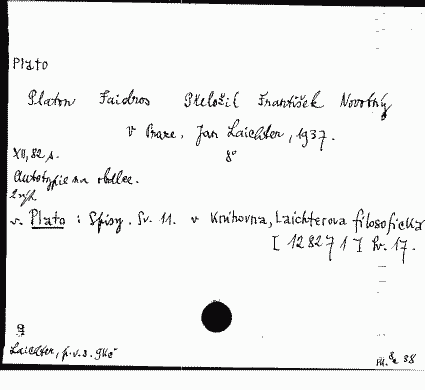 Plato
Platon Faidros Přeložil František Novotný
v Praze, Jan Laichter, 1937.
XII, 82 p. 8°
Autotypie na obálce.
2 výt.
v. Plato: Spisy. Sv. 11. v Knihovna, Laichterova filosofická
[128271] kv. 17.
Laichter,